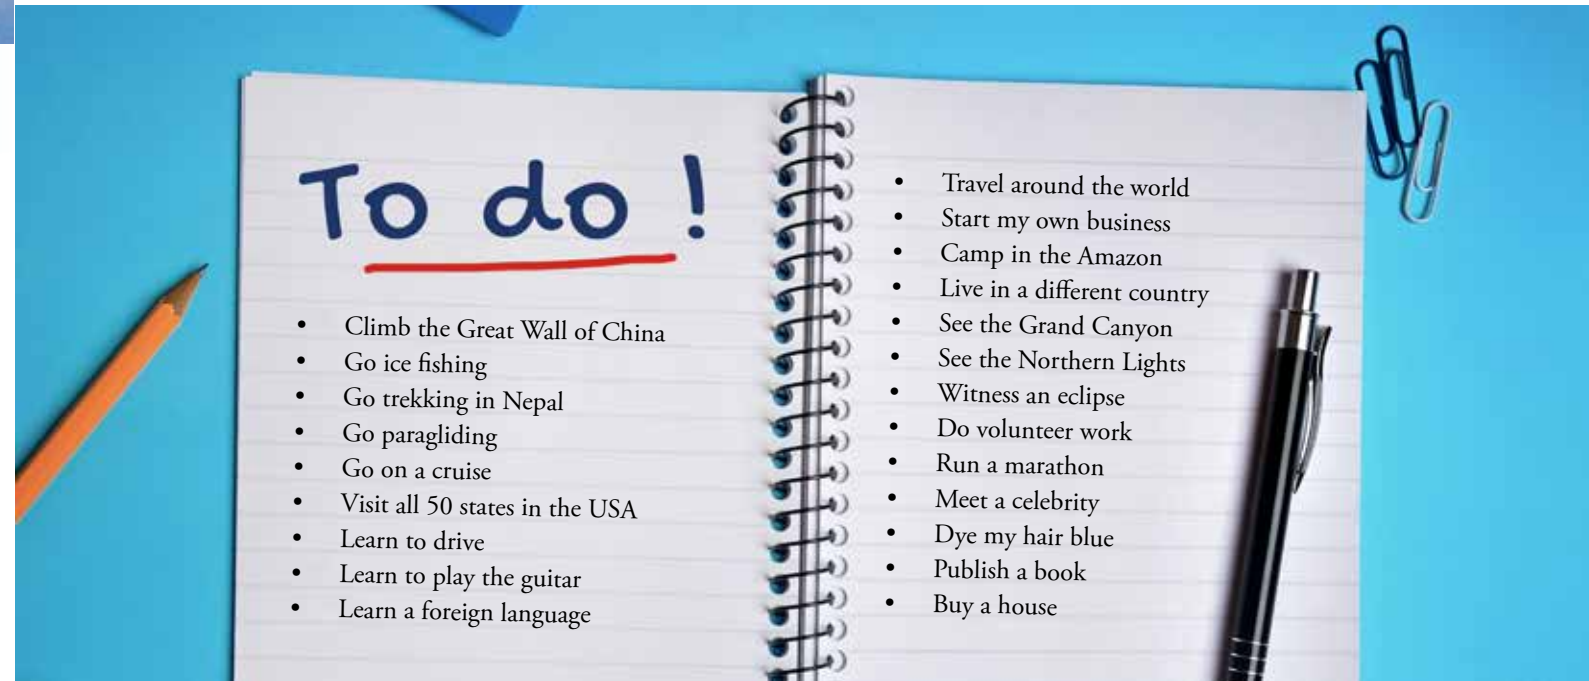 To do !
• Climb the Great Wall of China
• Go ice fishing
• Go trekking in Nepal
• Go paragliding
• Go on a cruise
• Visit all 50 states in the USA
• Learn to drive
• Learn to play the guitar
• Learn a foreign language
• Travel around the world
• Start my own business
• Camp in the Amazon
• Live in a different country
• See the Grand Canyon
• See the Northern Lights
• Witness an eclipse
• Do volunteer work
• Run a marathon
• Meet a celebrity
• Dye my hair blue
• Publish a book
• Buy a house